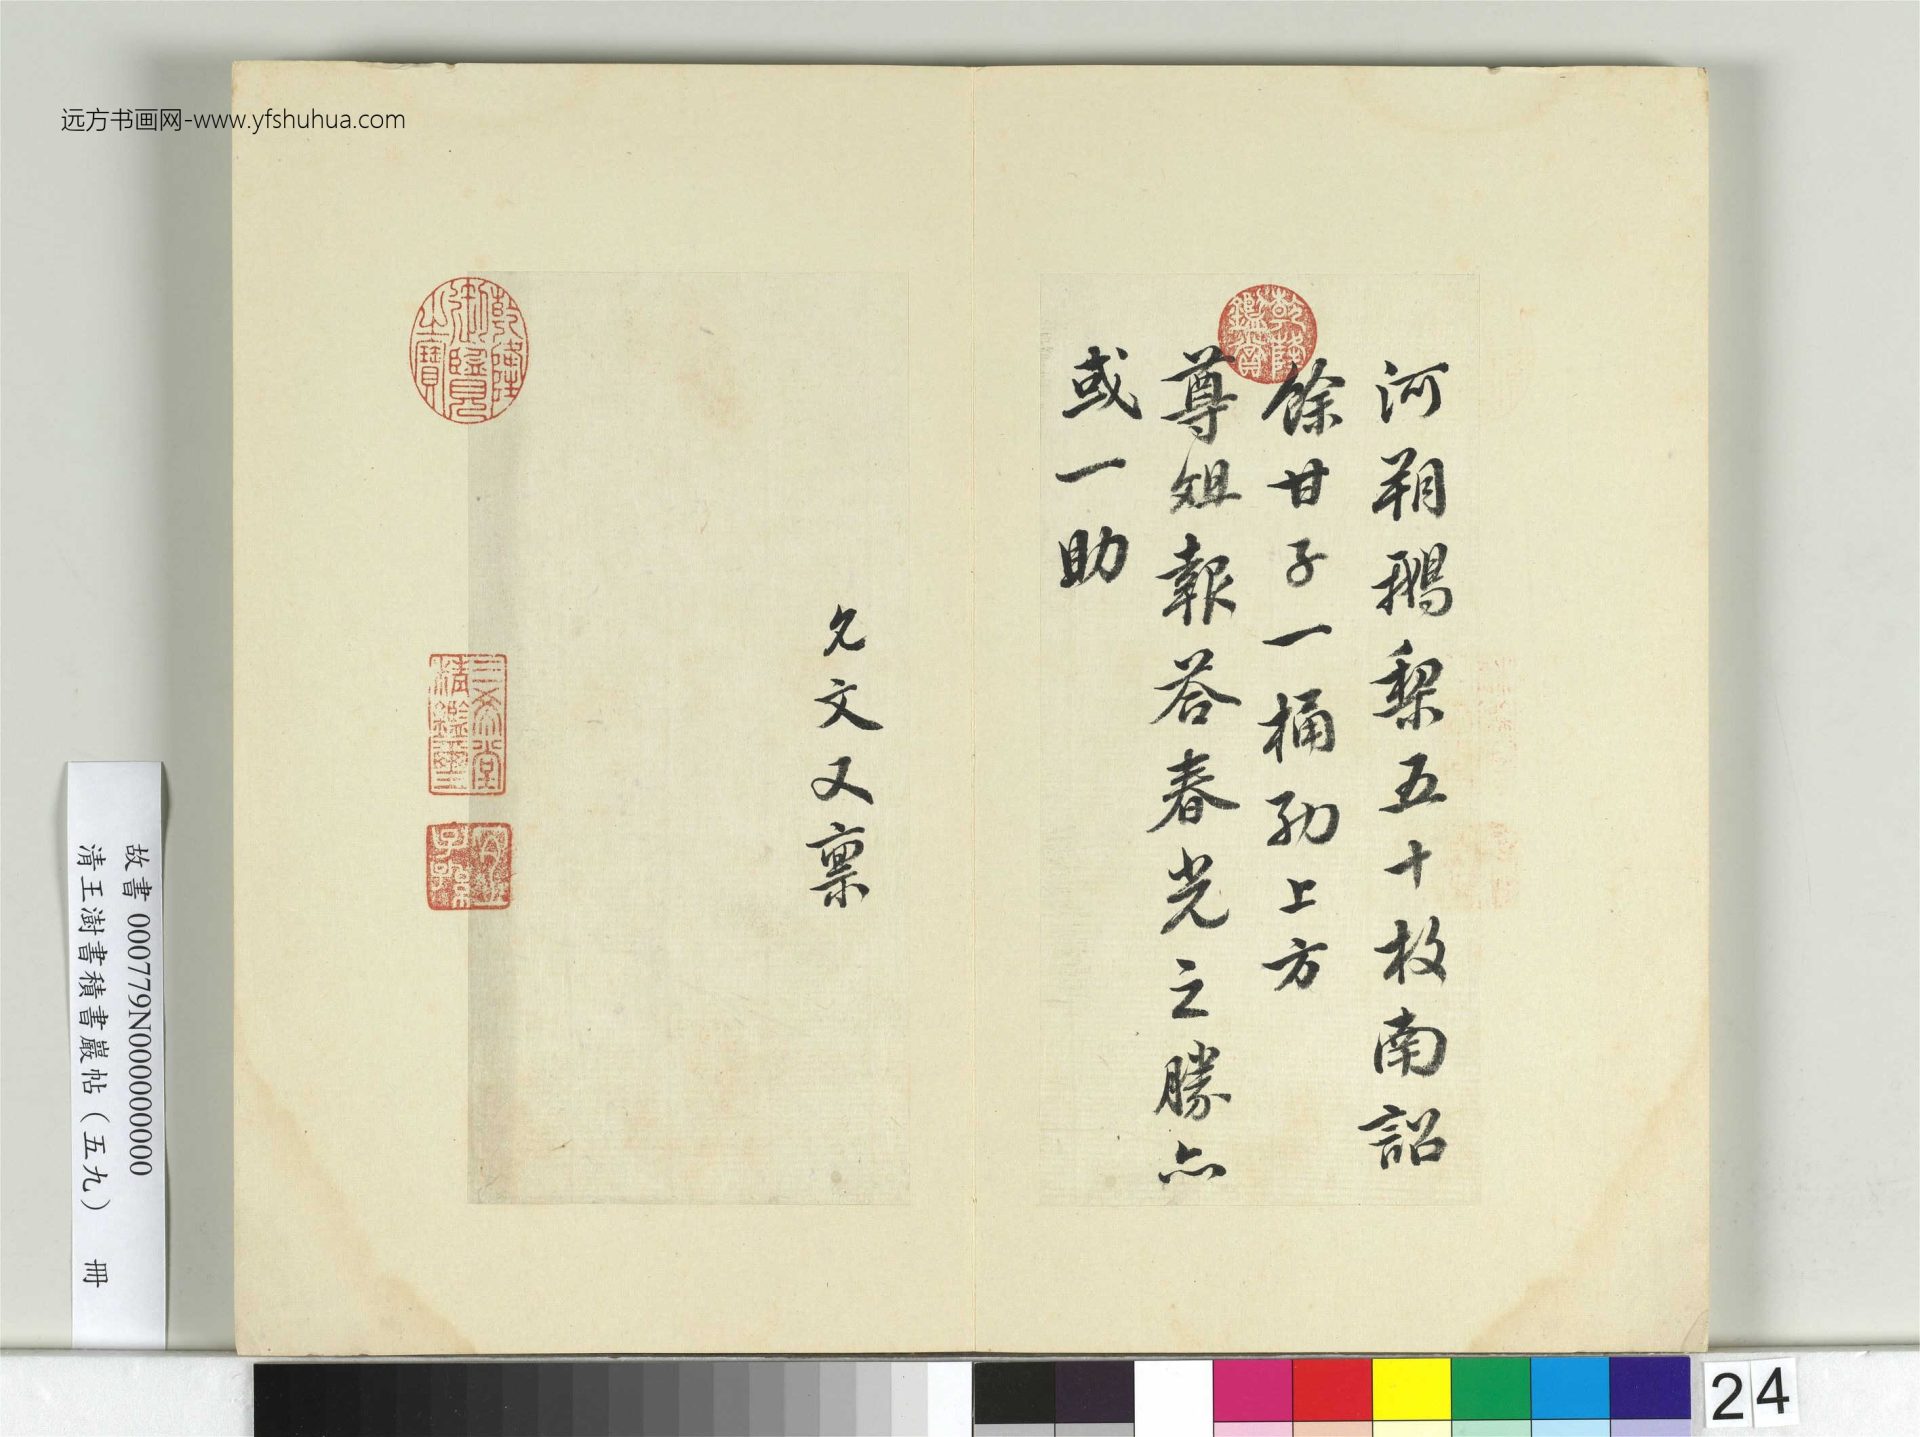 远方书画网-www.yfshuhua.com
河朔鵝梨五十枚南詔
餘甘子一桶劾上方
尊俎報荅春光之勝亦
或一助
允文又稟
乾隆鑑賞
乾隆御覽之寶
三希堂精鑑璽
宜子孫
故書 000779N000000000
清王澍書積書巖帖（五九） 冊
24